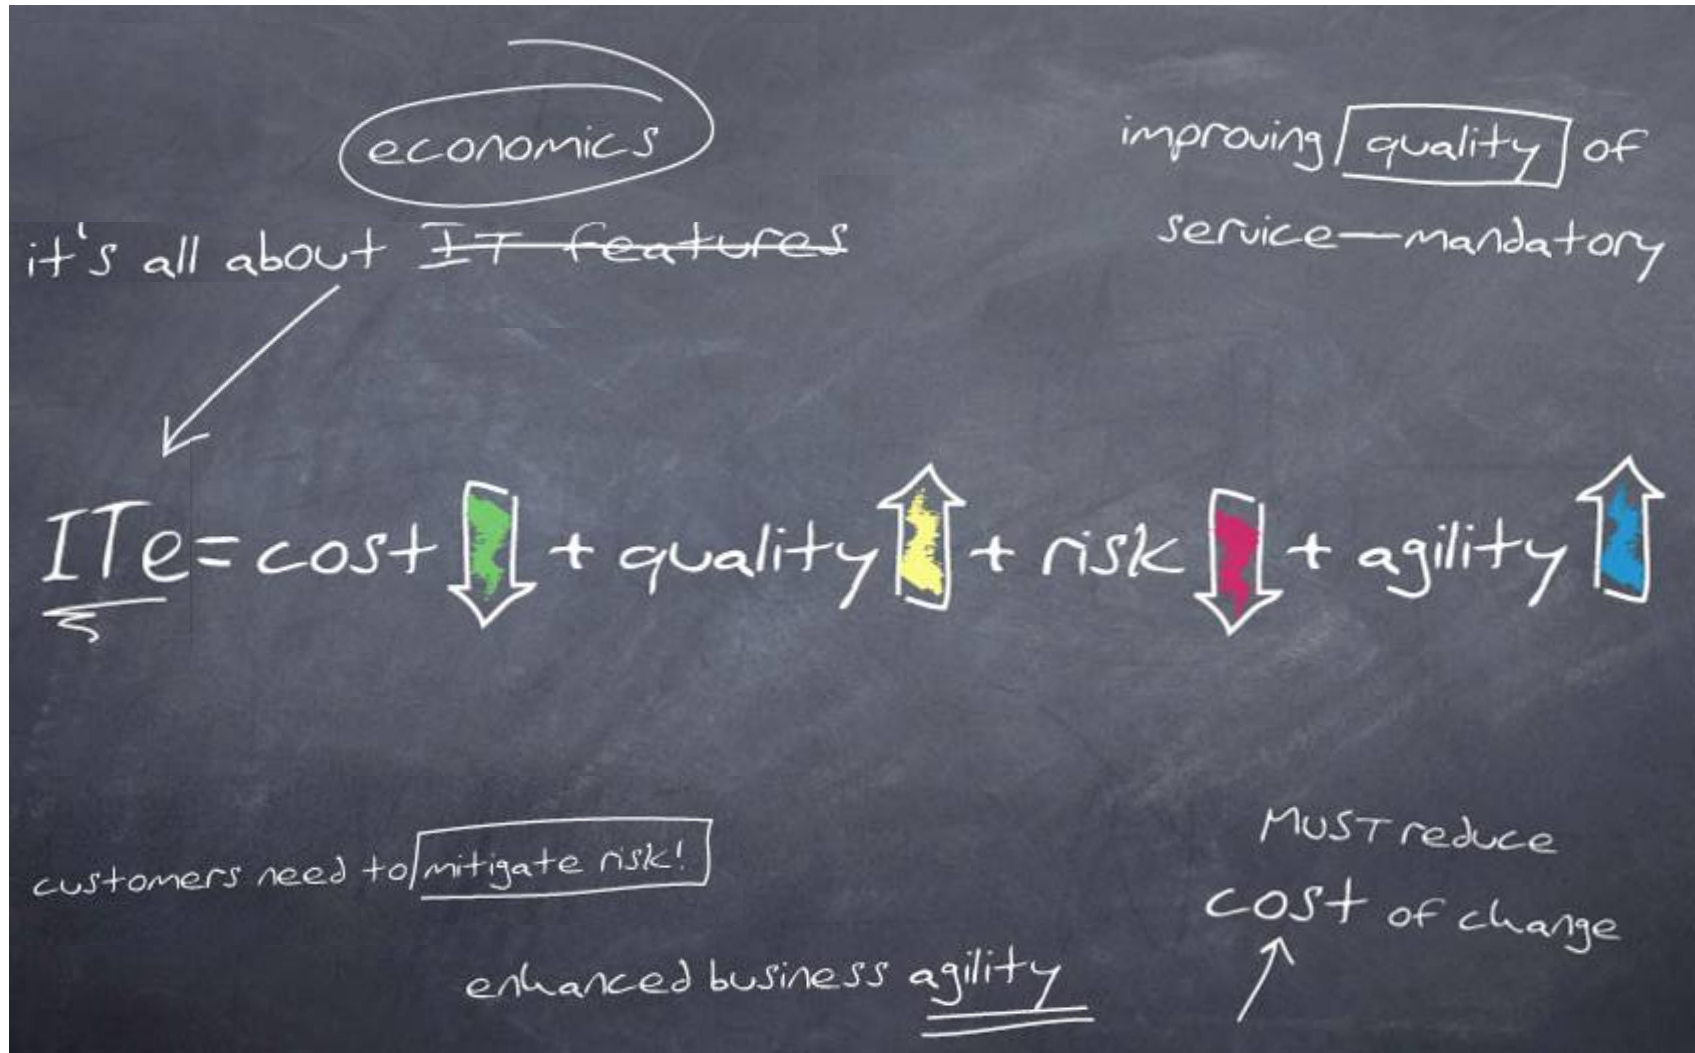 economics
it's all about IT features
improving quality of
service—mandatory
ITe=cost + quality + risk + agility
customers need to mitigate risk!
enhanced business agility
MUST reduce
cost of change